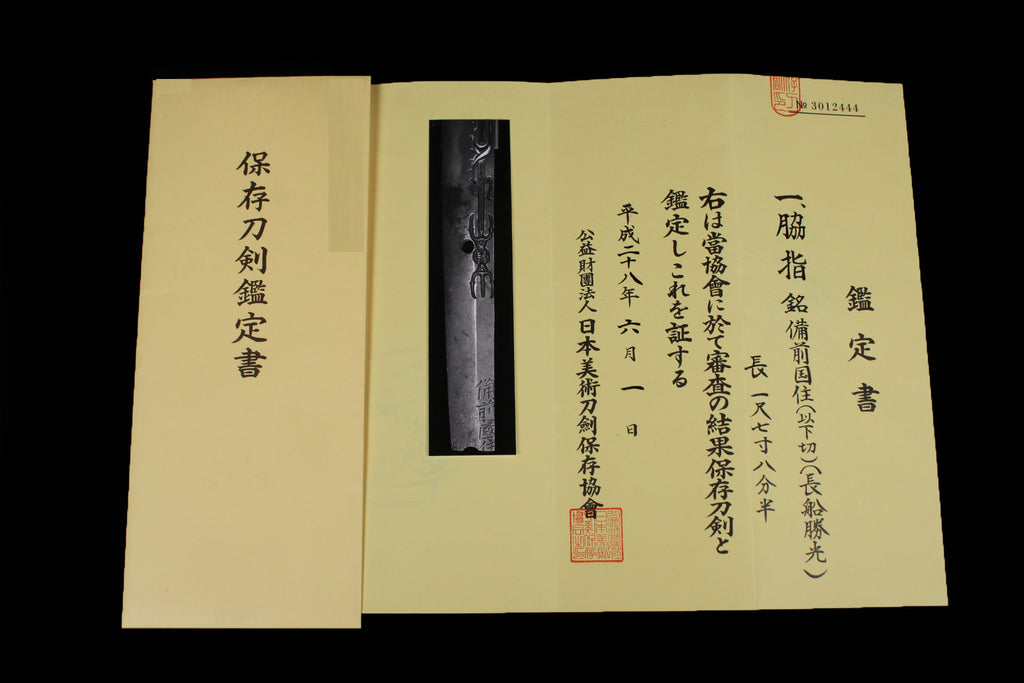 保存刀剣鑑定書
№ 3012444
鑑定書
一、脇指 銘 備前国住(以下切)(長船勝光)
長 一尺七寸八分半
右は當協會に於て審査の結果保存刀剣と
鑑定しこれを証する
平成二十八年 六月 一日
公益財團法人 日本美術刀劍保存協會
備前國住